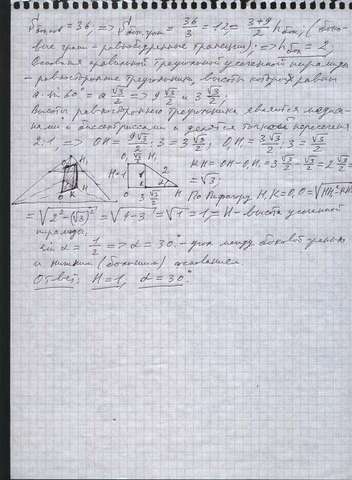 Sбок.пов = 36, => Sбок.грани = 36/3 = 12, = (3+9)/2 hбок, (боко-
вые грани – равнобедренные трапеции), => hбок = 2,
Основания правильной треугольной усеченной пирамиды
– равносторонние треугольники, высоты которых равны
a·sin 60° = a √3/2 => 9√3/2 и 3√3/2;
Высоты равностороннего треугольника являются медиа-
нами и биссектрисами и делятся точкой пересечения
2:1, => OH = 9√3/2 : 3 = 3√3/2, O₁H₁ = 3√3/2 : 3 = √3/2;
KH = OH - O₁H₁ = 3√3/2 - √3/2 = 2√3/2
= √3;
По Пифагору H₁K = O₁O = √HH₁² - KH²
= √2² - (√3)² = √4-3 = √1 = 1 = H – высота усеченной
пирамиды.
sin α = 1/2 => α = 30° – угол между боковой гранью
и нижним (большим) основанием
Ответ: H = 1, α = 30°